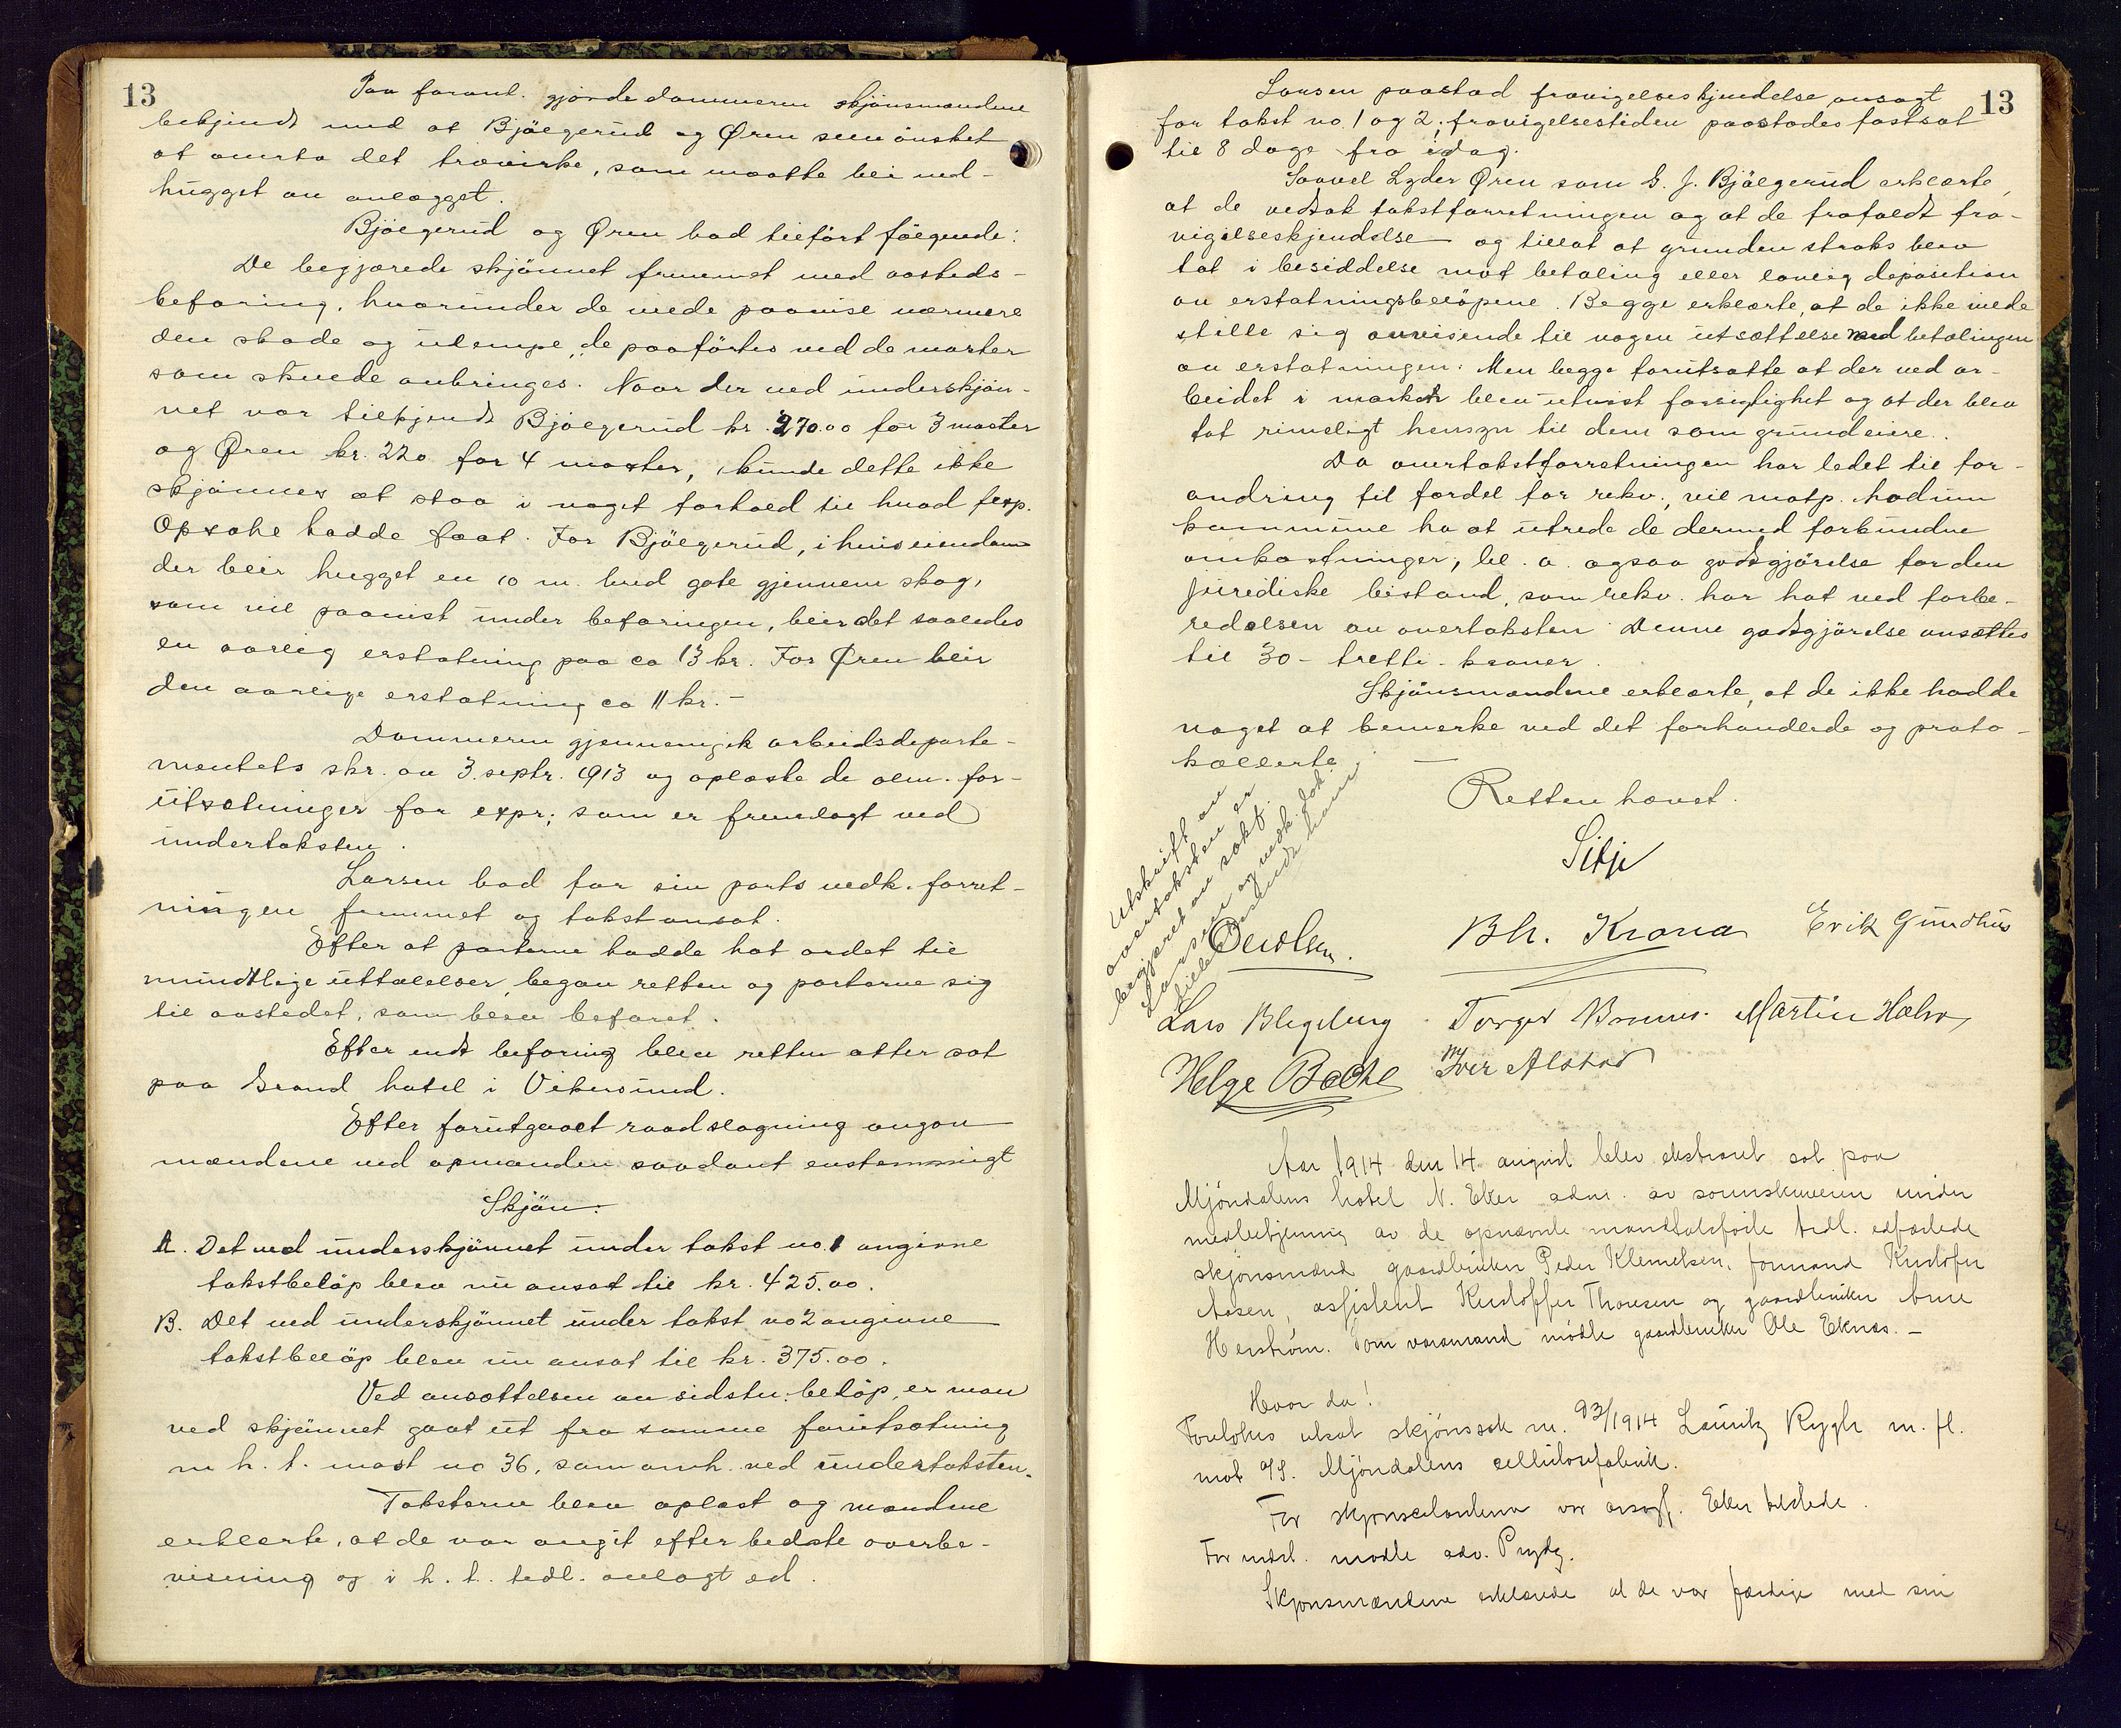 13
Paa foranl. gjorde dommeren skjönsmændene
bekjendt med at Bjölgerud og Øren selv ønsket
at overta det trævirke, som maatte bli ned-
hugget av anlægget.
Bjölgerud og Øren bad tilfört fölgende:
De begjærede skjönnet fremmet med aasteds-
befaring, hvorunder de vilde paavise nærmere
den skade og ulempe, de paaförtes ved de master
som skulde anbringes. Naar der ved underskjön-
net var tilkjendt Bjölgerud kr. 270.00 for 3 master
og Øren kr. 220 for 4 master, kunde dette ikke
skjönnes at staa i noget forhold til hvad
Opsahl hadde faat. For Bjölgerud, i hvis eiendom
der blir hugget en 10 m. bred gate gjennem skog,
som vil paavist under befaringen, blir det saaledes
en aarlig erstatning paa ca 13 kr. For Øren blir
den aarlige erstatning ca 11 kr. -
Dommeren gjennemgik arbeidsdeparte-
mentets skr. av 3. septr. 1913 og oplæste de alm. for-
utsætninger for expr; som er fremlagt ved
undertaksten.
Larsen bad for sin parts vedk. forret-
ningen fremmet og takst ansat.
Efter at parterne hadde hat ordet til
mundtlige uttalelser, begav retten og parterne sig
til aastedet, som blev befaret.
Efter endt befaring blev retten atter sat
paa Grand hotel i Vikersund.
Efter forutgaaet raadslagning avgav
mændene ved opmanden saadant enstemmigt
Skjön:
A. Det ved underskjönnet under takst no. 1 angivne
takstbelöp blev nu ansat til kr. 425.00.
B. Det ved underskjönnet under takst no 2 angivne
takstbelöp blev nu ansat til kr. 375.00.
Ved ansættelsen av sidstn. belöp, er man
ved skjönnet gaat ut fra samme forutsætning
m. h. t. mast no 36, som omh. ved undertaksten.
Taksterne blev oplæst og mændene
erklærte, at de var avgit efter bedste overbe-
visning og i h. t. tidl. avlagt ed.
13
Larsen paastod fravigelseskjendelse avsagt
for takst no. 1 og 2; fravigelsestiden paastodes fastsat
til 8 dage fra idag.
Saavel Lyder Øren som G. J. Bjölgerud erklærte,
at de vedtok takstforretningen og at de frafaldt fra-
vigelseskjendelse og tillot at grunden straks blev
tat i besiddelse mot betaling eller lovlig deposition
av erstatningsbelöpene. Begge erklærte, at de ikke vilde
stille sig avvisende til nogen utsættelse med betalingen
av erstatningen. Men begge forutsatte at der ved ar-
beidet i marken blev utvist forsigtighet og at der blev
tat rimeligt hensyn til dem som grundeiere.
Da overtakstforretningen har ledet til for-
andring til fordel for rekv., vil motp. Modum
kommune ha at utrede de dermed forbundne
omkostninger, bl. a. ogsaa godtgjörelse for den
juridiske bistand, som rekv. har hat ved forbe-
redelsen av overtaksten. Denne godtgjörelse ansættes
til 30 - tretti - kroner.
Skjönsmændene erklærte, at de ikke hadde
noget at bemerke ved det forhandlede og proto-
kollerte. -
Retten hævet.
Utskrift av
overtaksten er
begjært av sakf.
Larsen og vedk. dok.
Sitje
Bh. Krona
Erik Gundhus
Lars Blegeberg
Torger
Martin
Helge Bache
Iver Alstad
Aar 1914 den 14 august blev ekstraret sat paa
Mjöndalens hotel N. Eker adm. av sorenskriveren under
medbetjening av de opnævnte mandtalsförte tidl. edfæstede
skjönsmænd gaardbruker Peder Klemetsen, formand Kristofer
Aasen, assistent Kristoffer Thoresen og gaardbruker Arne
Herström. Som varamand mötte gaardbruker Ole Eknes. -
Hvor da!
Foretokes utsat skjönssak nr. 93/1914 Lauritz Rygh m. fl.
mot A/S. Mjöndalens cellulosefabrik.
For skjönseierne var
For indst. mötte adv. Prydz.
Skjönsmændene erklærede at de var færdige med sin